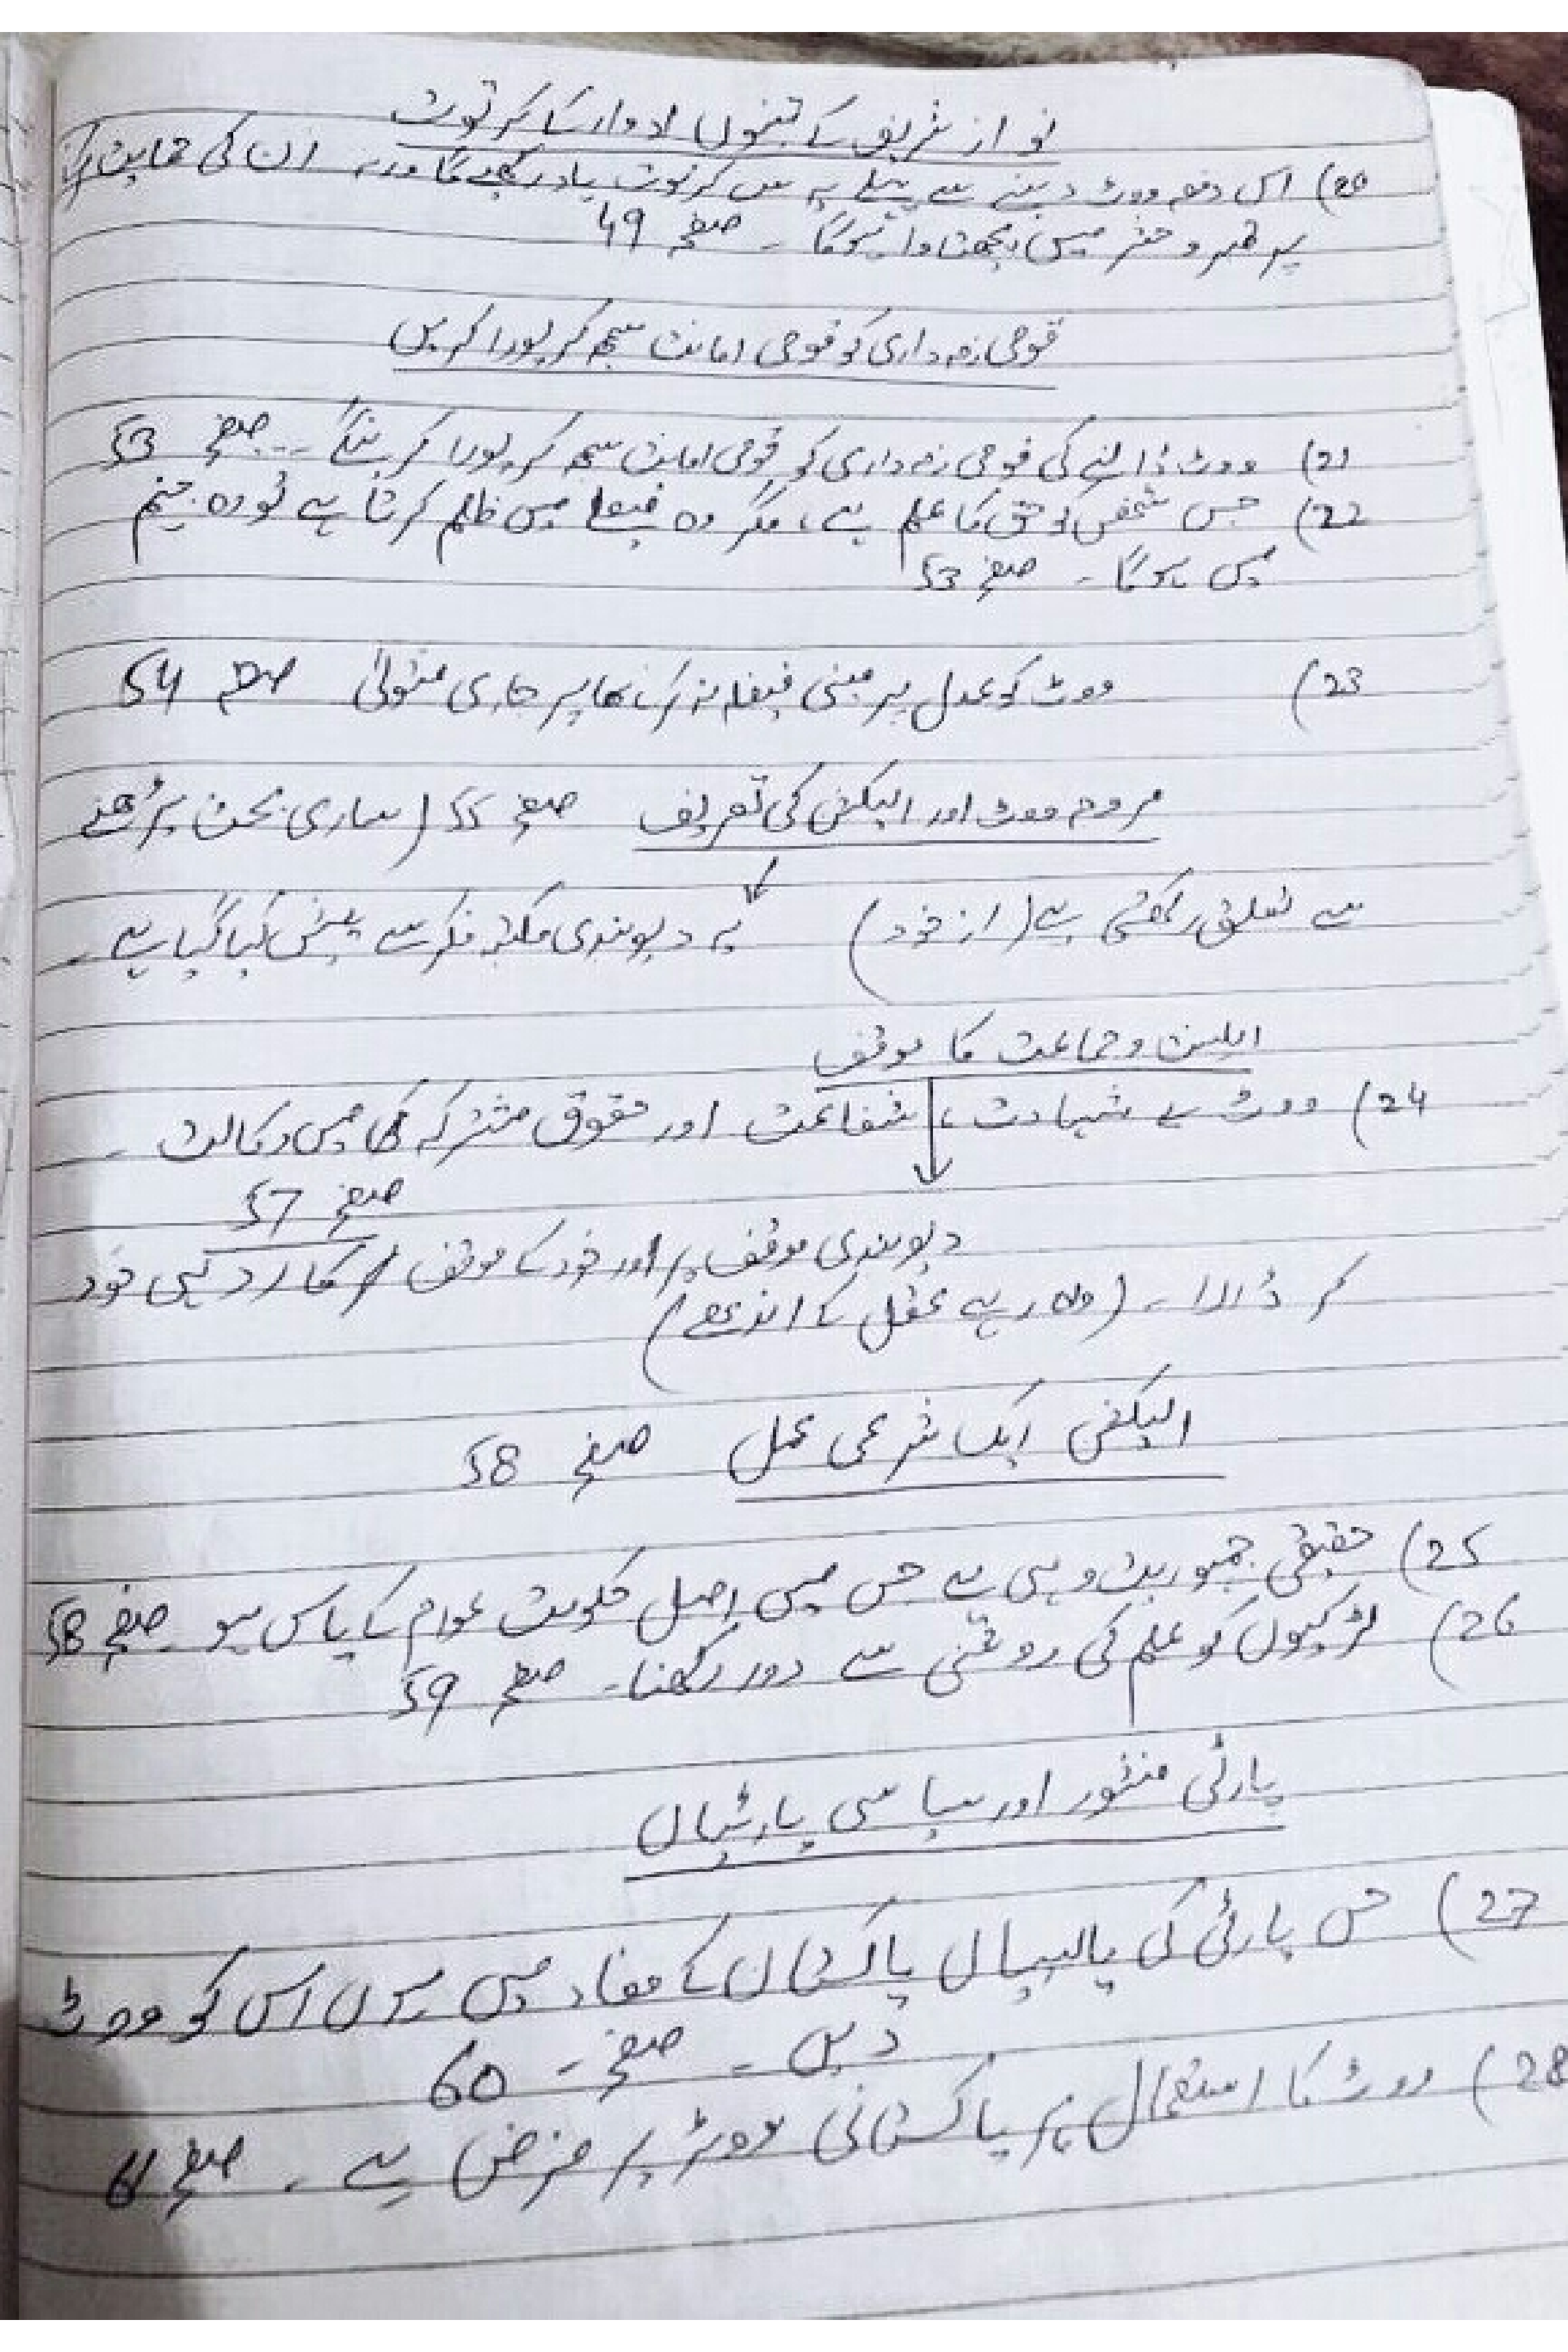 نواز شریف کے تینوں ادوار کا کرتوت
20) اس دفعہ ووٹ دینے سے پہلے یہ سب کرتوت یاد رکھیے گا ورنہ ان کی حمایت
پر قبر و حشر میں پچھتاوا ہوگا ۔ صفحہ 49
قومی زمہ داری کو قومی امانت سمجھ کر پورا کریں
21) ووٹ ڈالنے کی قومی زمہ داری کو قومی امانت سمجھ کر پورا کرینگے ۔۔ صفحہ 53
22) جس شخص کو حق کا علم ہے، مگر وہ فیصلے میں ظلم کرتا ہے تو وہ جہنم
میں ہوگا ۔ صفحہ 53
23) ووٹ کو عدل پر مبنی فیصلہ نہ کرنے پر جاری فتویٰ صفحہ 54
مروجہ ووٹ اور الیکشن کی تعریف صفحہ 55 (ساری بحث پڑھنے
سے تعلق رکھتی ہے (از خود) یہ دیوبندی مکتبہ فکر سے پیش کیا گیا ہے ۔
اہلسنت و جماعت کا موقف
24) ووٹ ہے شہادت، شفاعت اور حقوق مشترکہ میں وکالت ۔
صفحہ 57
دیوبندی موقف پر اور خود کے موقف کا رد ہی خود
کر ڈالا ۔ (واہ رے عقل کے اندھے)
الیکشن ایک شرعی عمل صفحہ 58
25) حقیقی جمہوریت وہی ہے جس میں اصل حکومت عوام کے پاس ہو ۔ صفحہ 58
26) لڑکیوں کو علم کی روشنی سے دور رکھنا ۔ صفحہ 59
پارٹی منشور اور سیاسی پارٹیاں
27) جس پارٹی کی پالیسیاں پاکستان کے مفاد میں ہوں اس کو ووٹ
دیں ۔ صفحہ ۔ 60
28) ووٹ کا استعمال ہر پاکستانی ووٹر پر فرض ہے ۔ صفحہ 61